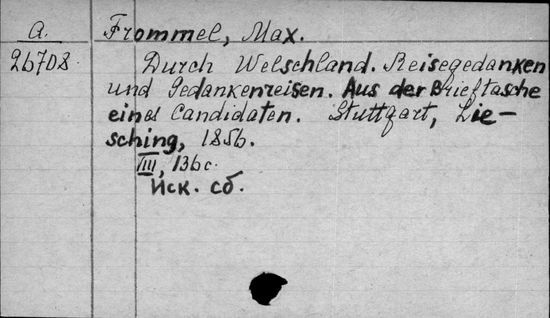 A. Frommel, Max.
26708 Durch Welschland. Reisegedanken
und Gedankenreisen. Aus der Brieftasche
eines Candidaten. Stuttgart, Lie-
sching, 1856.
III, 136 c.
Иск. сб.